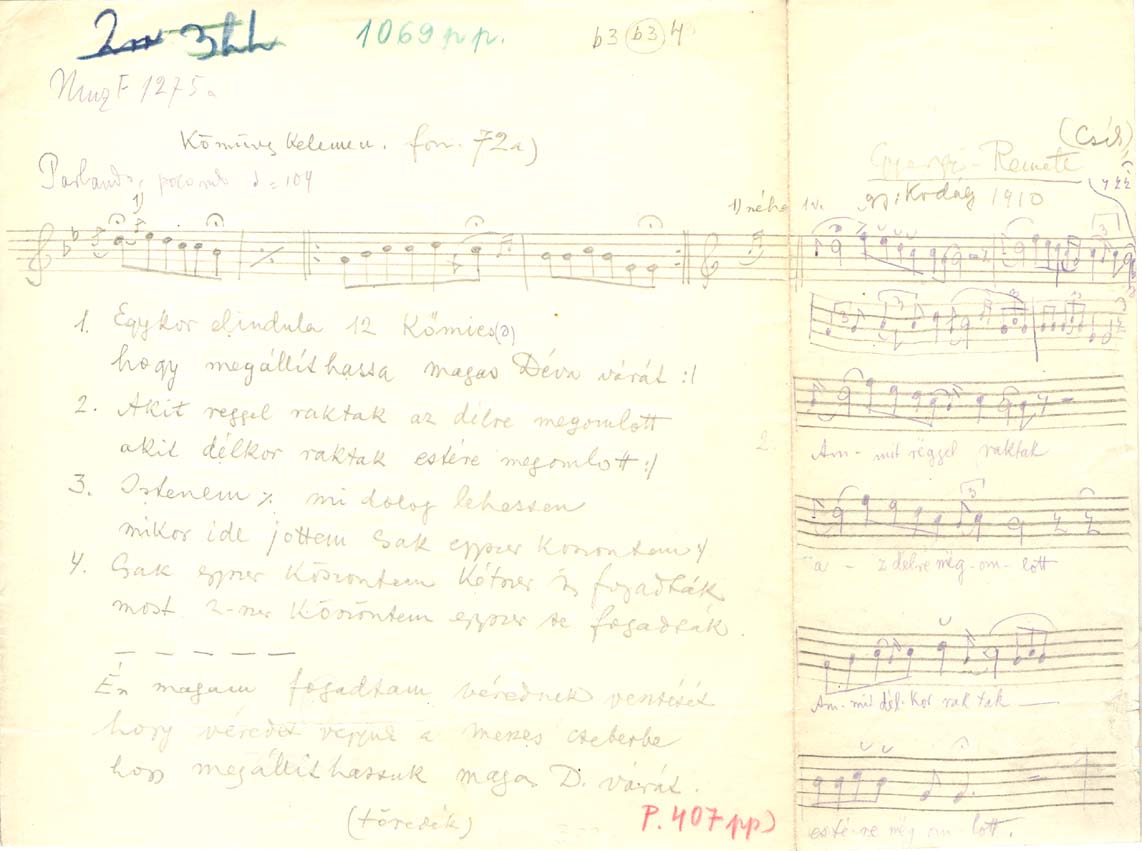 2 3
1069 pp.
b3 b3 4
MuzF 1275a
Kőmüves Kelemen. fon. 72a)
(Csík)
Gyergyó-Remete
gy: Kodály 1910
Parlando, poco rub ♩=104
1)
1) néha 1v.
3
1. Egykor elindula 12 Kőmies(ə)
hogy megállithassa magas Déva várát :|
2. Akit reggel raktak az délre megomlott
akit délkor raktak estére megomlott :|
3. Istenem ٪ mi dolog lehessen
mikor ide jottem csak egyszer koszontem
4. Csak egyszer Köszontem Kétszer is fogadták
most 2-szer Köszöntem egyszer se fogadták.
— — — — —
Én magam fogadtam vérednek ventését
hogy véredet vegyük a meszes cseberbe
hogy megállithassuk magas D. várát.
(töredék)
P. 407 pp)
3 3
2.
Am- mit réggel raktak
3
a - z délre még-om-lött
Am-mit dél-kor rak ták
esté-re még om lott.